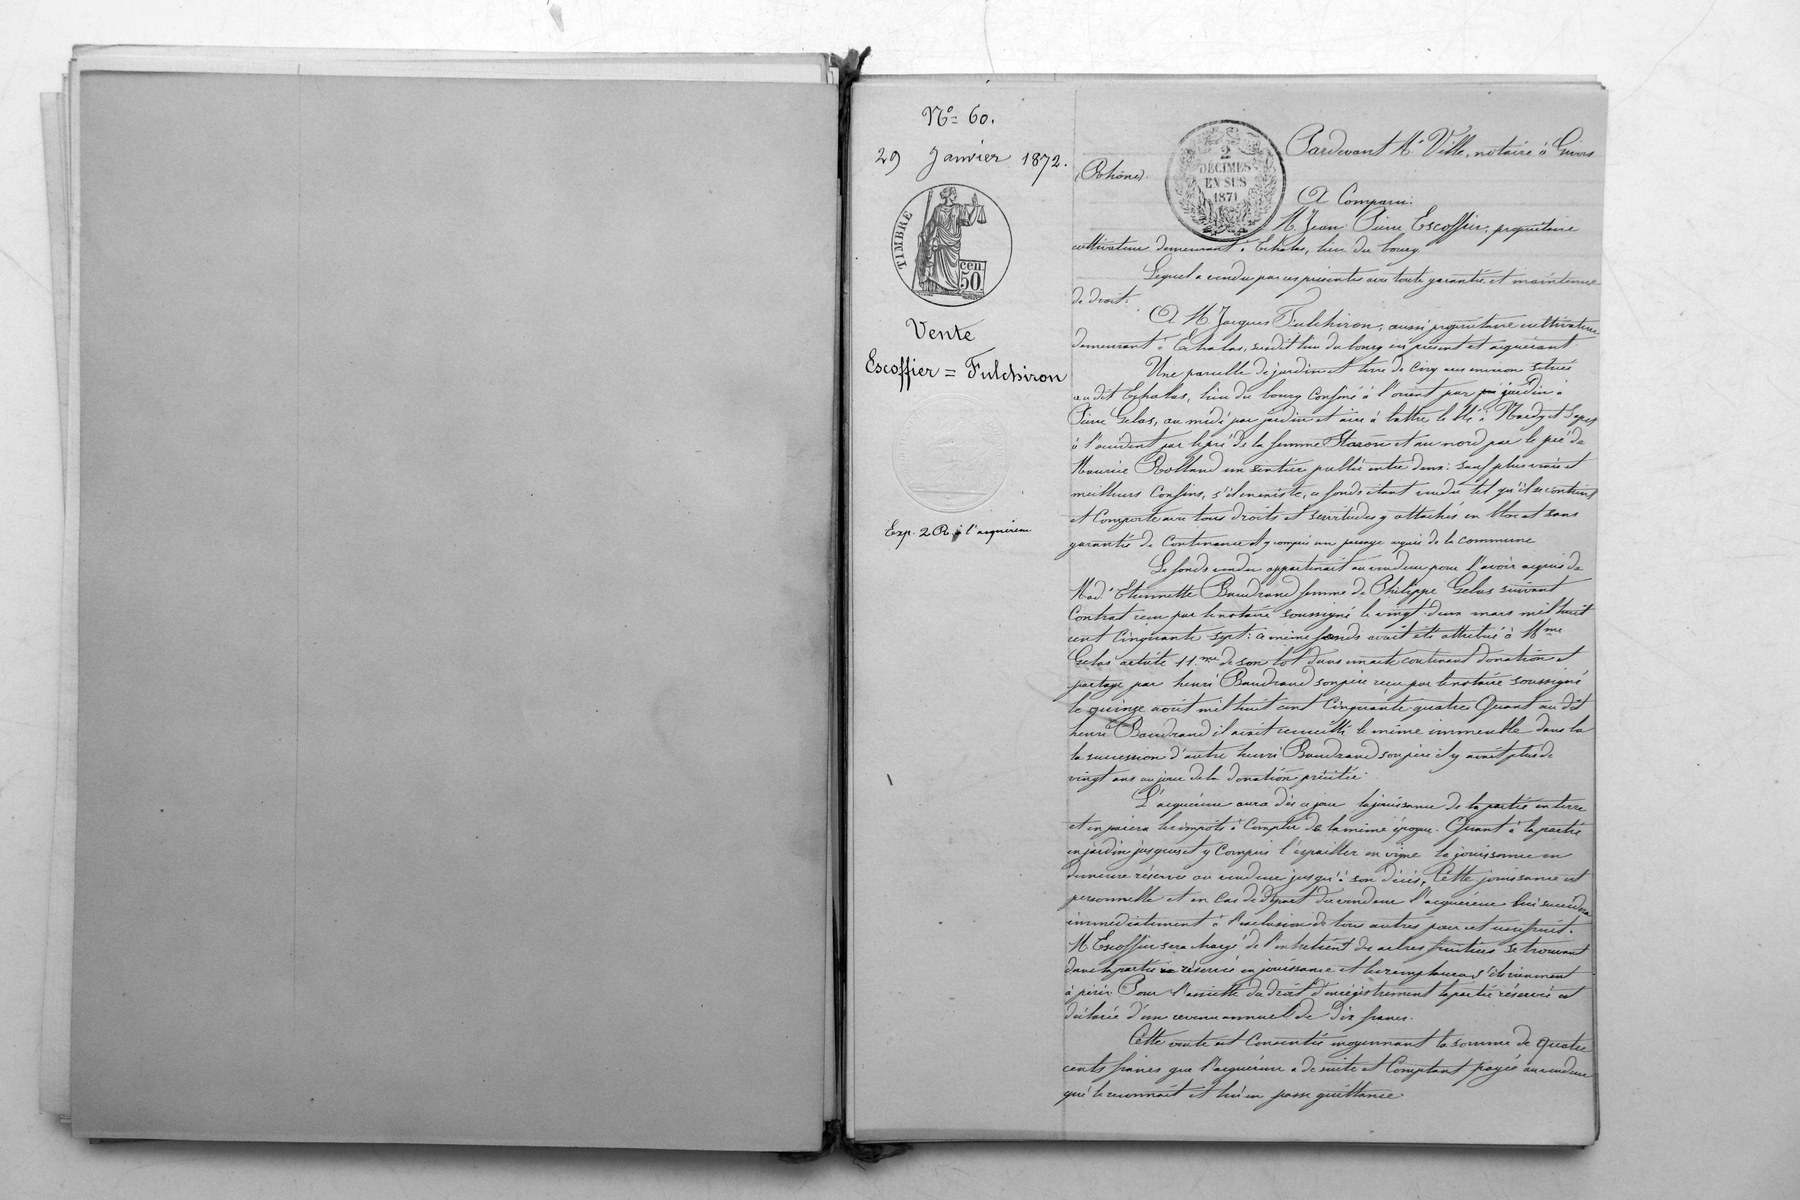 Nº 60.
29 Janvier 1872.
TIMBRE
cen.
50.
Vente
Escoffier = Fulchiron
Exp. 2 R. à l'acquéreur
2
DÉCIMES
EN SUS
1871
Pardevant Me Ville, notaire à Givors
(Rhône).
A Comparu:
M. Jean Pierre Escoffier, propriétaire
cultivateur demeurant à Echalas, lieu du bourg.
Lequel a vendu par ces présentes avec toute garantie et maintenue
de droit.
A M. Jacques Fulchiron, aussi propriétaire cultivateur
demeurant à Echalas, susdit lieu du bourg ici présent et acquérant
Une parcelle de jardin et terre de cinq ares environ située
au dit Echalas, lieu du bourg confiné à l'orient par jardin à
Pierre Gelas, au midi par jardin et aire à battre le blé à
à l'occident par le pré de la femme Staron et au nord par le pré de
Maurice Rolland un sentier public entre deux: sauf plus vrais et
meilleurs confins, s'il en existe, ce fonds étant vendu tel qu'il se contient
et comporte avec tous droits et servitudes y attachés en bloc et sans
garantie de contenance et y compris un passage acquis de la commune
Le fonds vendu appartenait au vendeur pour l'avoir acquis de
Made Etiennette Baudrand femme de Philippe Gelas suivant
contrat reçu par le notaire soussigné le vingt-deux mars mil huit
cent cinquante sept: ce même fonds avait été attribué à Mme
Gelas article 11me de son lot dans un acte contenant donation et
partage par henri Baudrand son père reçu par le notaire soussigné
le quinze aout mil huit cent cinquante quatre. Quant au dit
henri Baudrand il avait recueilli le même immeuble dans la
la succession d'autre henri Baudrand son père il y avait plus de
vingt ans au jour de la donation précitée.
L'acquéreur aura dès ce jour la jouissance de la partie en terre
et en paiera les impôts à compter de la même époque. Quant à la partie
en jardin jusques et y compris l'espallier en vigne la jouissance en
demeure réservée au vendeur jusqu'à son décès. Cette jouissance est
personnelle et en cas de départ du vendeur l'acquéreur lui succédera
immédiatement à l'exclusion de tous autres pour cet usufruit.
M. Escoffier sera chargé de l'entretient des arbres fruitiers se trouvant
dans la partie réservée en jouissance et les remplacera s'ils viennent
à périr. Pour l'assiette du droit d'enregistrement la partie réservée est
déclarée d'un revenu annuel de dix francs.
Cette vente est consentie moyennant la somme de quatre
cents francs que l'acquéreur a de suite et comptant payée au vendeur
qui le reconnait et lui en passe quittance.